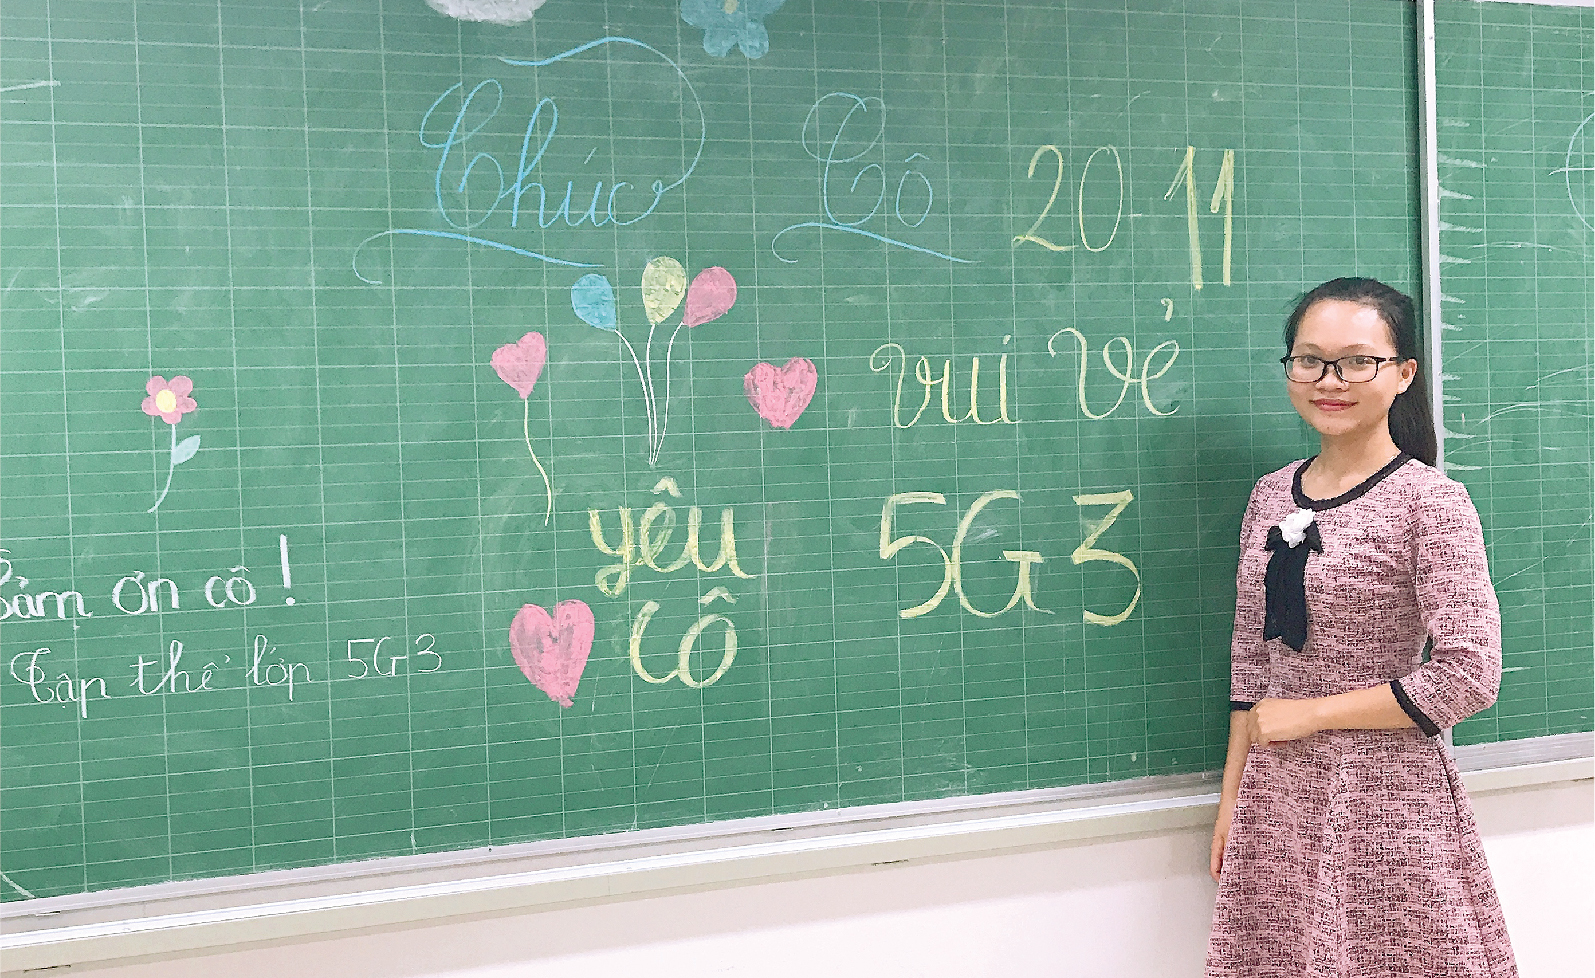 Chúc Cô 20 11
vui vẻ
yêu
cô
5G3
Cảm ơn cô !
Tập thể lớp 5G3